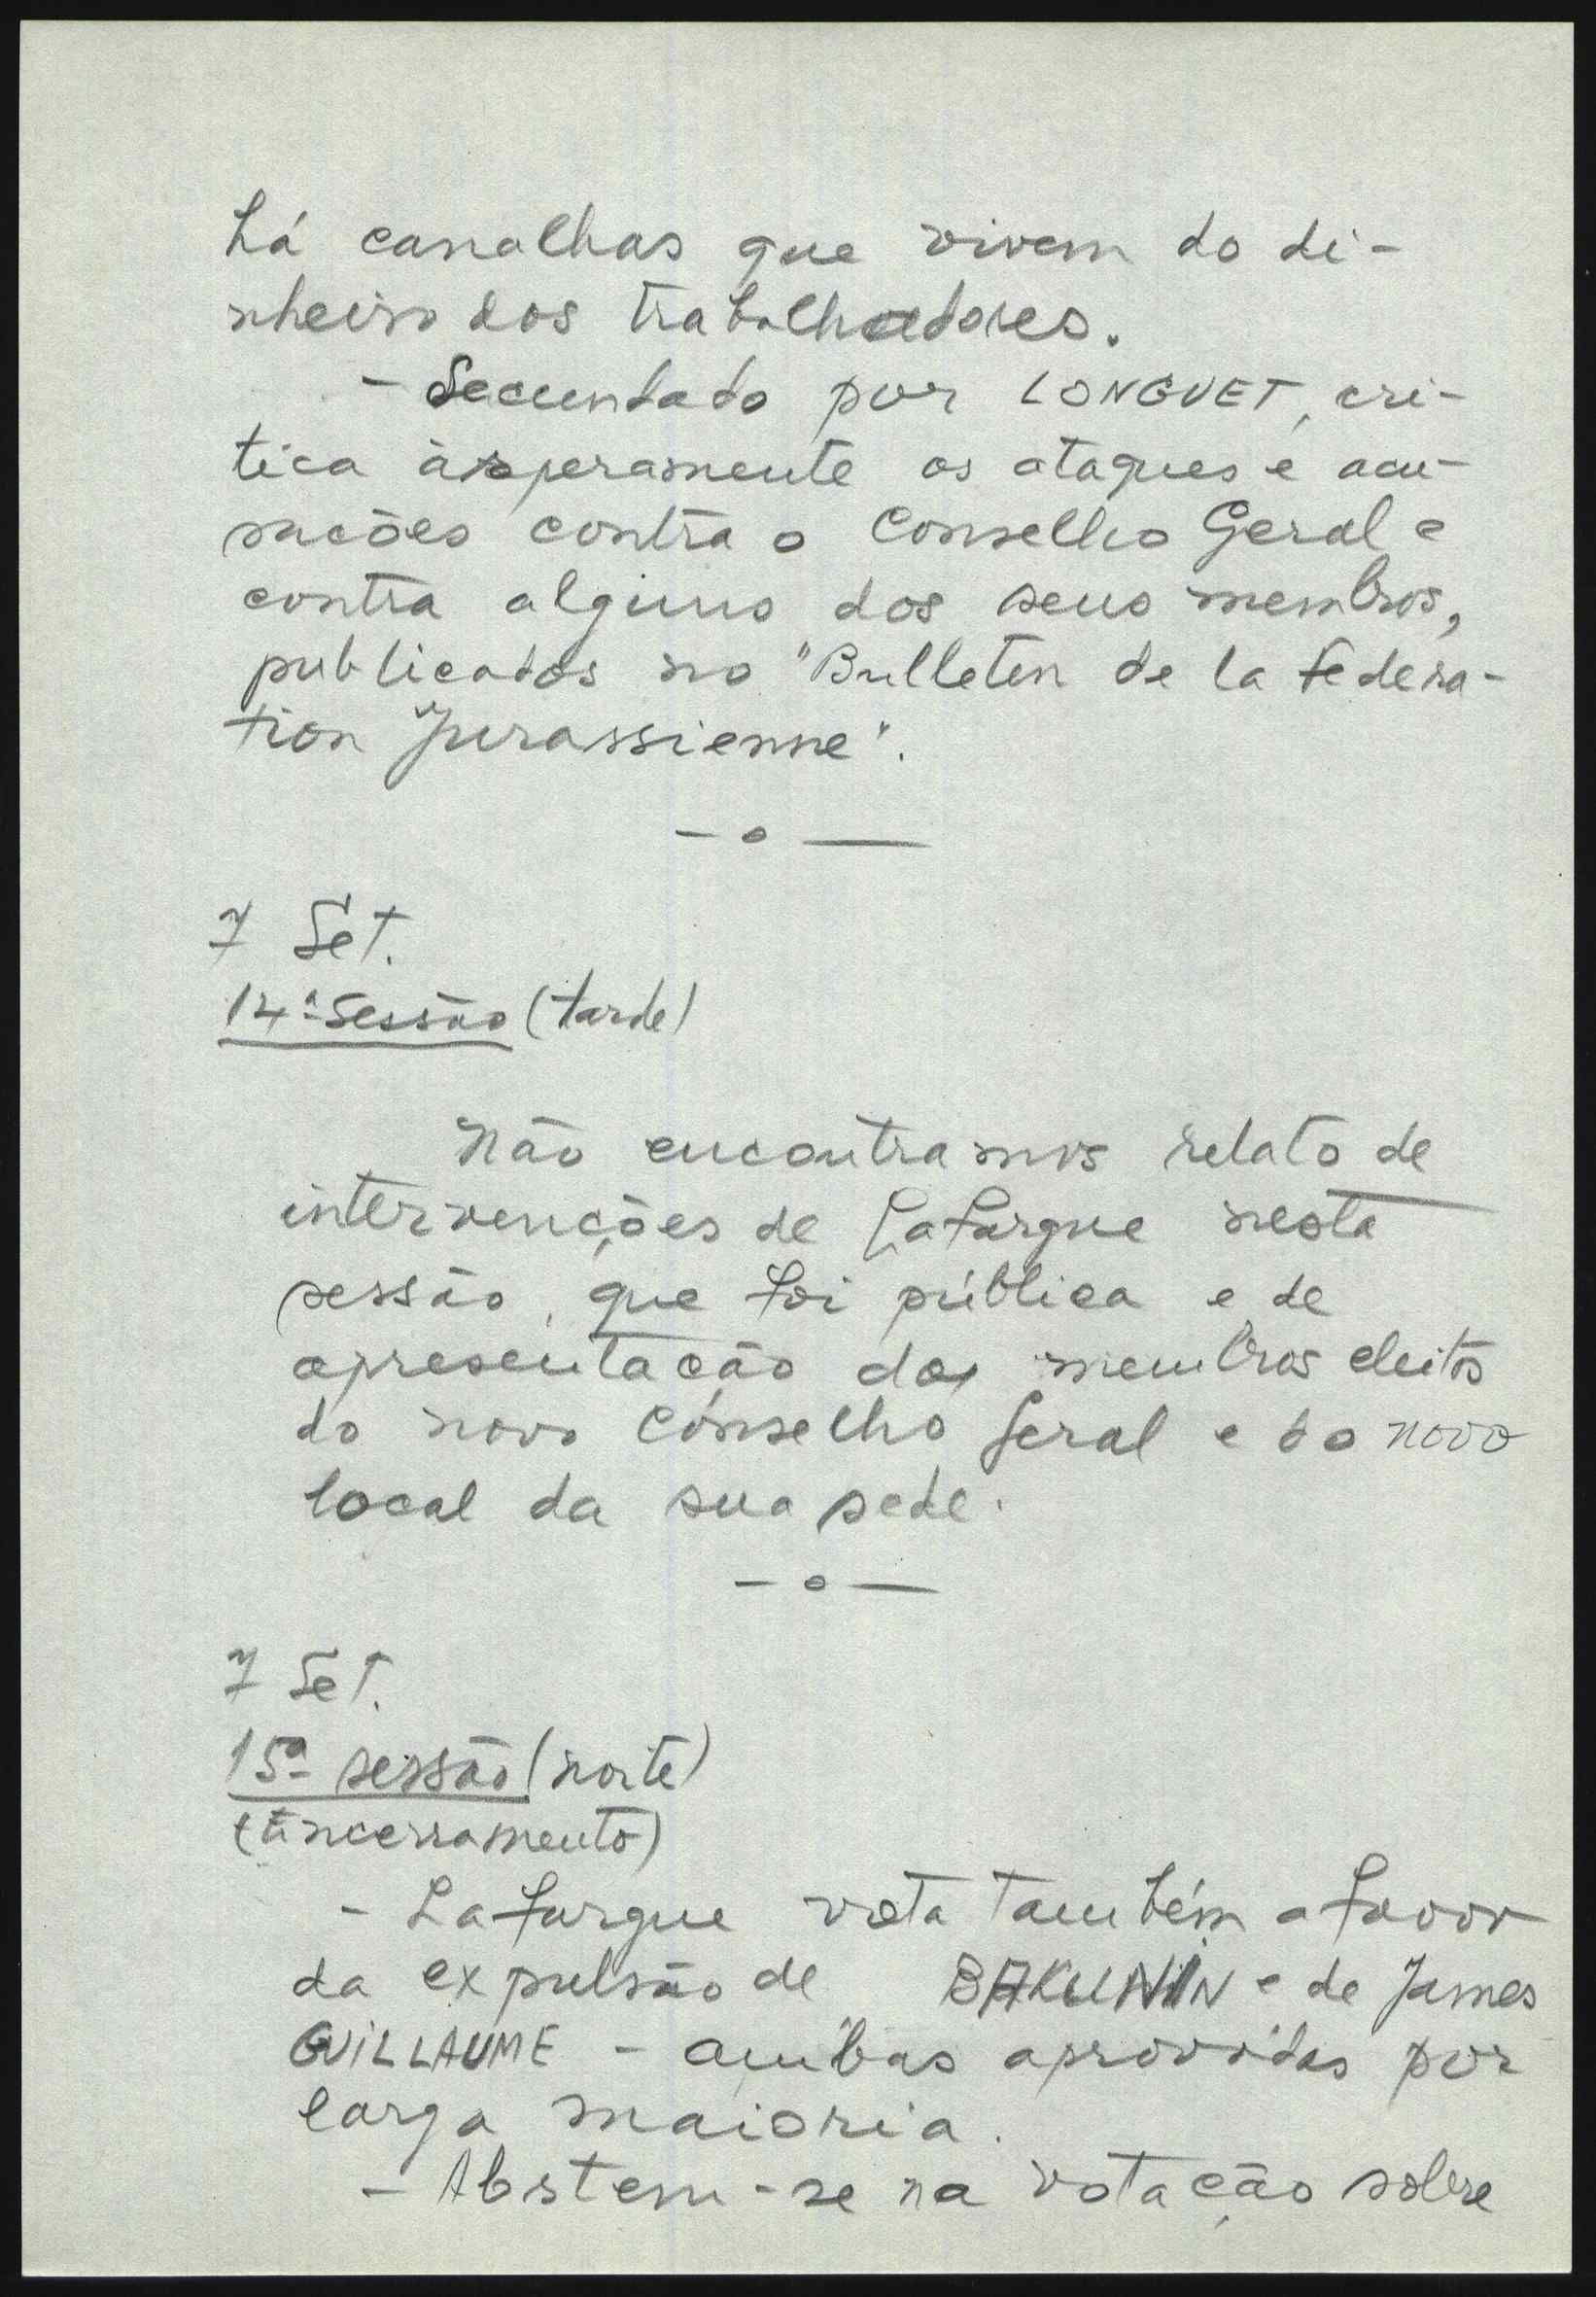 há canalhas que vivem do di-
nheiro dos trabalhadores.
- Secundado por LONGUET, cri-
tica àsperamente os ataques e acu-
sações contra o Conselho Geral e
contra alguns dos seus membros,
publicados no "Bulletin de la federa-
tion Jurassienne".
- o -
7 Set.
14ª sessão (tarde)
Não encontramos relato de
intervenções de Lafargue nesta
sessão, que foi pública e de
apresentação dos membros eleitos
do novo Conselho Geral e do novo
local da sua sede.
- o -
7 Set.
15ª sessão (noite)
(Encerramento)
- Lafargue vota também a favor
da expulsão de BAKUNIN e de James
GUILLAUME - ambas aprovadas por
larga maioria.
- Abstem-se na votação sobre